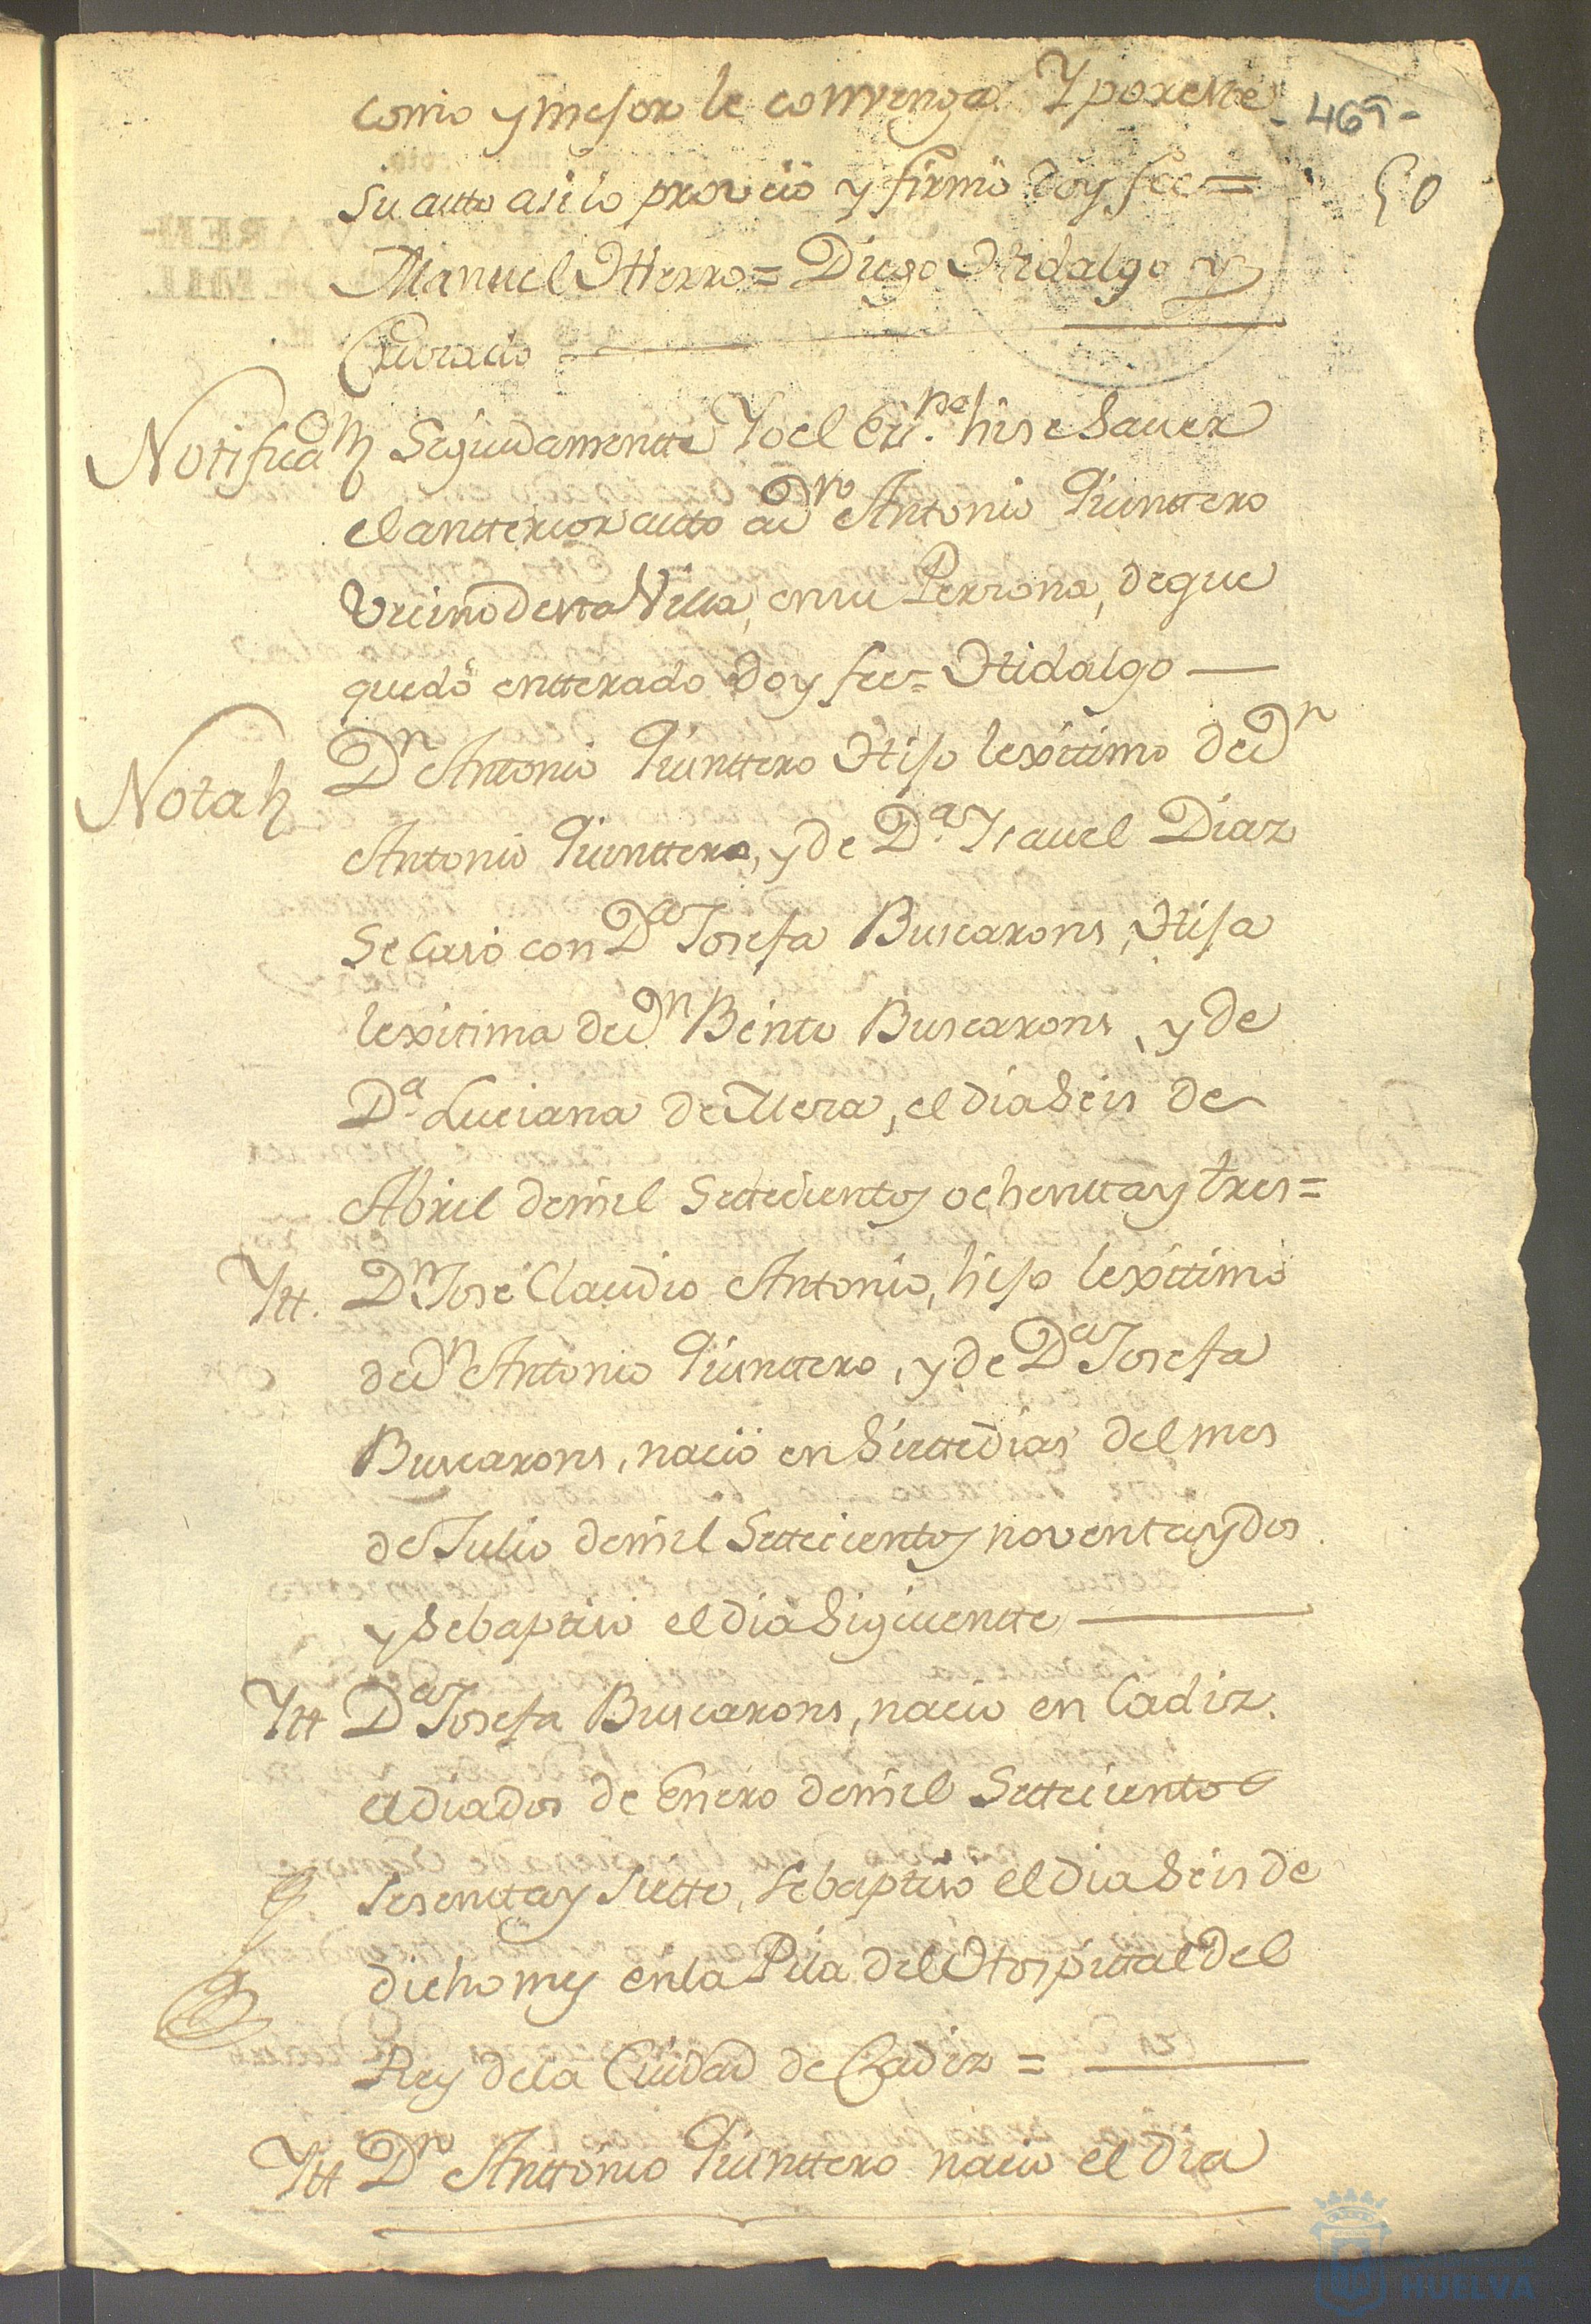 como y mejor le convenga. Y por este
- 469 -
50
su auto asi lo proveió y firmó doy fee =
Manuel Hierro = Diego Hidalgo y
Notificaⁿ Seguidamentte Yo el Esⁿᵒ hise Saver
el antterior autto a Dⁿ Antonio Quinttero
Vecino de esta Villa, en su Persona, de que
quedó entterado Doy fee = Hidalgo —
Nota Dⁿ Antonio Quinttero Hijo lexitimo de Dⁿ
Antonio Quinttero, y de Dᵃ Ysavel Diaz
Se Caso con Dᵃ Josefa Buscarons, Hija
lexitima de Dⁿ Bento Buscarons, y de
Dᵃ Luciana de Mera, el dia Seis de
Abril de mil Settecientos ochentta y tres =
Ytt. Dⁿ José Claudio Antonio, hijo lexittimo
de Dⁿ Antonio Quinttero, y de Dᵃ Josefa
Buscarons, nació en Siette dias del mes
de Julio de mil Settecientos noventa y dos
y Se baptisó el dia Siguientte
Ytt Dᵃ Josefa Buscarons, nacio en Cadiz
el dia dos de Enero de mil Settecientos
Sesentta y Siette, Se baptisó el dia Seis de
dicho mes en la Pila del Hospittal del
Rey de la Ciudad de Cadiz =
Ytt Dⁿ Anttonio Quinttero nacio el dia
HUELVA